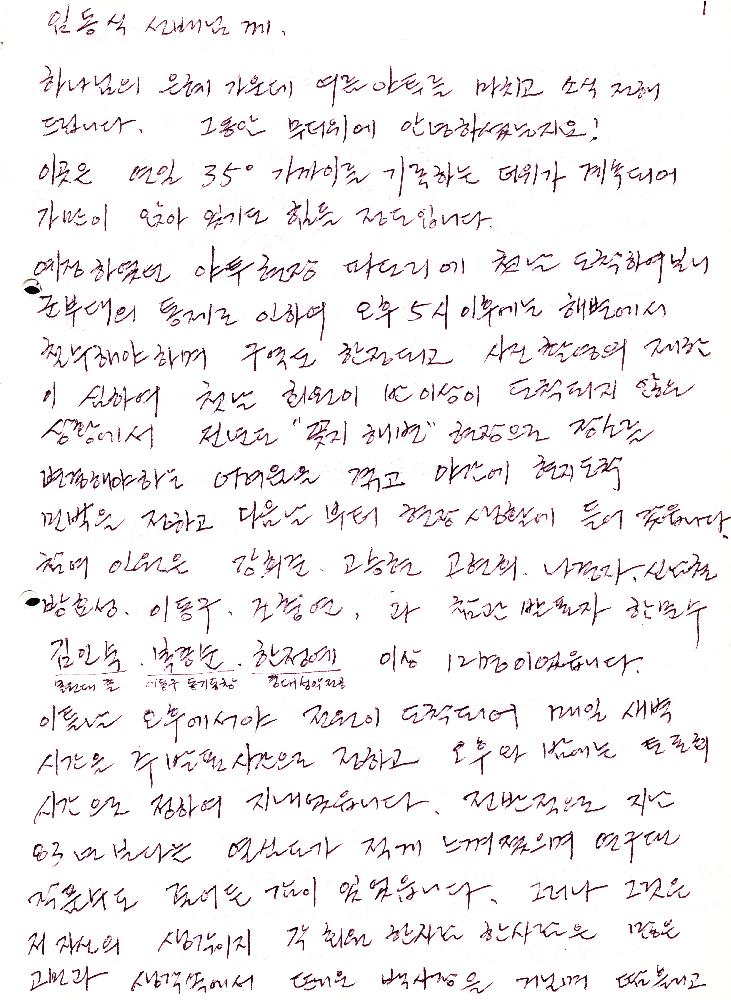 1
임동식 선배님께.
하나님의 은혜 가운데 여름 야투를 마치고 소식 전해
드립니다. 그동안 무더위에 안녕하셨는지요!
이곳은 연일 35° 가까이를 기록하는 더위가 계속되어
가만이 앉아 있기도 힘들 정도입니다.
예정하였던 야투현장 파도리에 첫날 도착하여보니
군부대의 통제로 인하여 오후 5시 이후에는 해변에서
철수해야 하며 구역도 한정되고 사진촬영의 제한
이 심하여 첫날 회원이 반이상이 도착되지 않는
상황에서 전년도 "꽃지 해변" 현장으로 장소를
변경해야하는 어려움을 겪고 야간에 현지도착
민박을 정하고 다음날 부터 현장생활에 들어 갔읍니다.
참여 인원은 강희준. 고승현 고현희. 나경자.
방효성. 이동구. 조충연, 과 참관 발표자
김인숙. 한정예 이상 12명이었읍니다.
이튿날 오후에서야 전원이 도착되어 매일 새벽
시간을 주발표시간으로 정하고 오후와 밤에는 토론회
시간으로 정하여 지내었읍니다. 전반적으로 지난
83년 보다는 열심도가 적게 느껴졌으며 연구대
작품수도 줄어든 감이 있었읍니다. 그러나 그것은
제 자신의 생각이지 각 회원 한사람 한사람은 많은
고민과 생각속에서 뜨거운 백사장을 거닐며